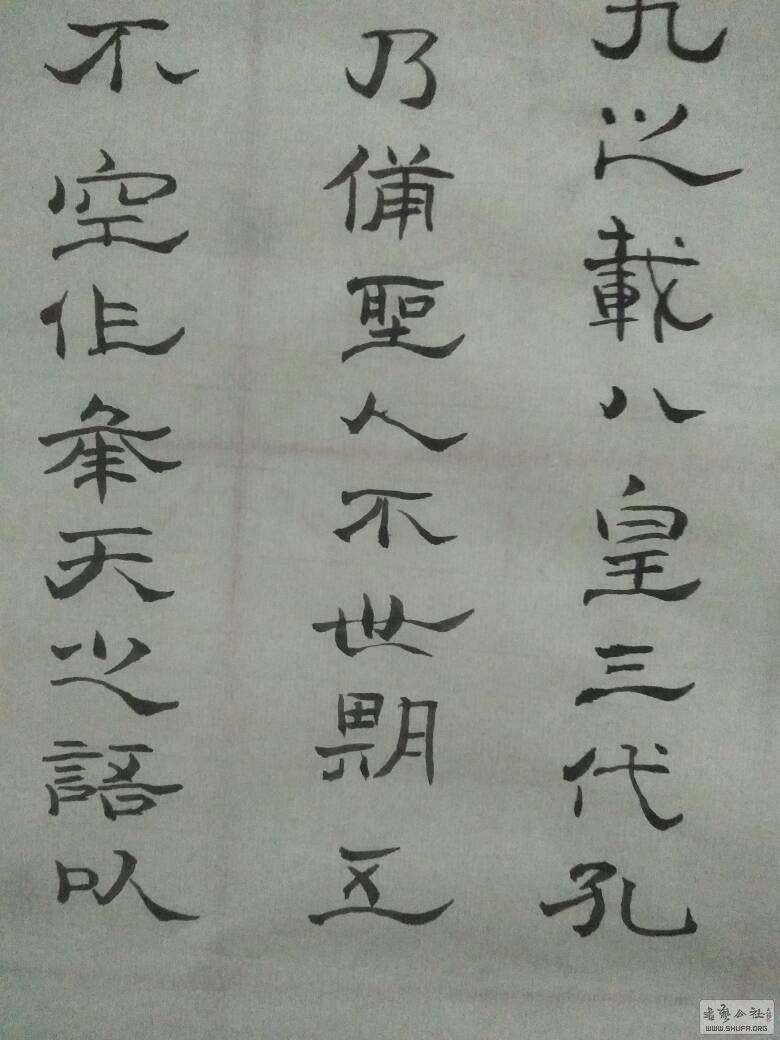 九之載八皇三代孔
乃備聖人不世期五
不空作承天之語以
书艺公社
WWW.SHUFA.ORG